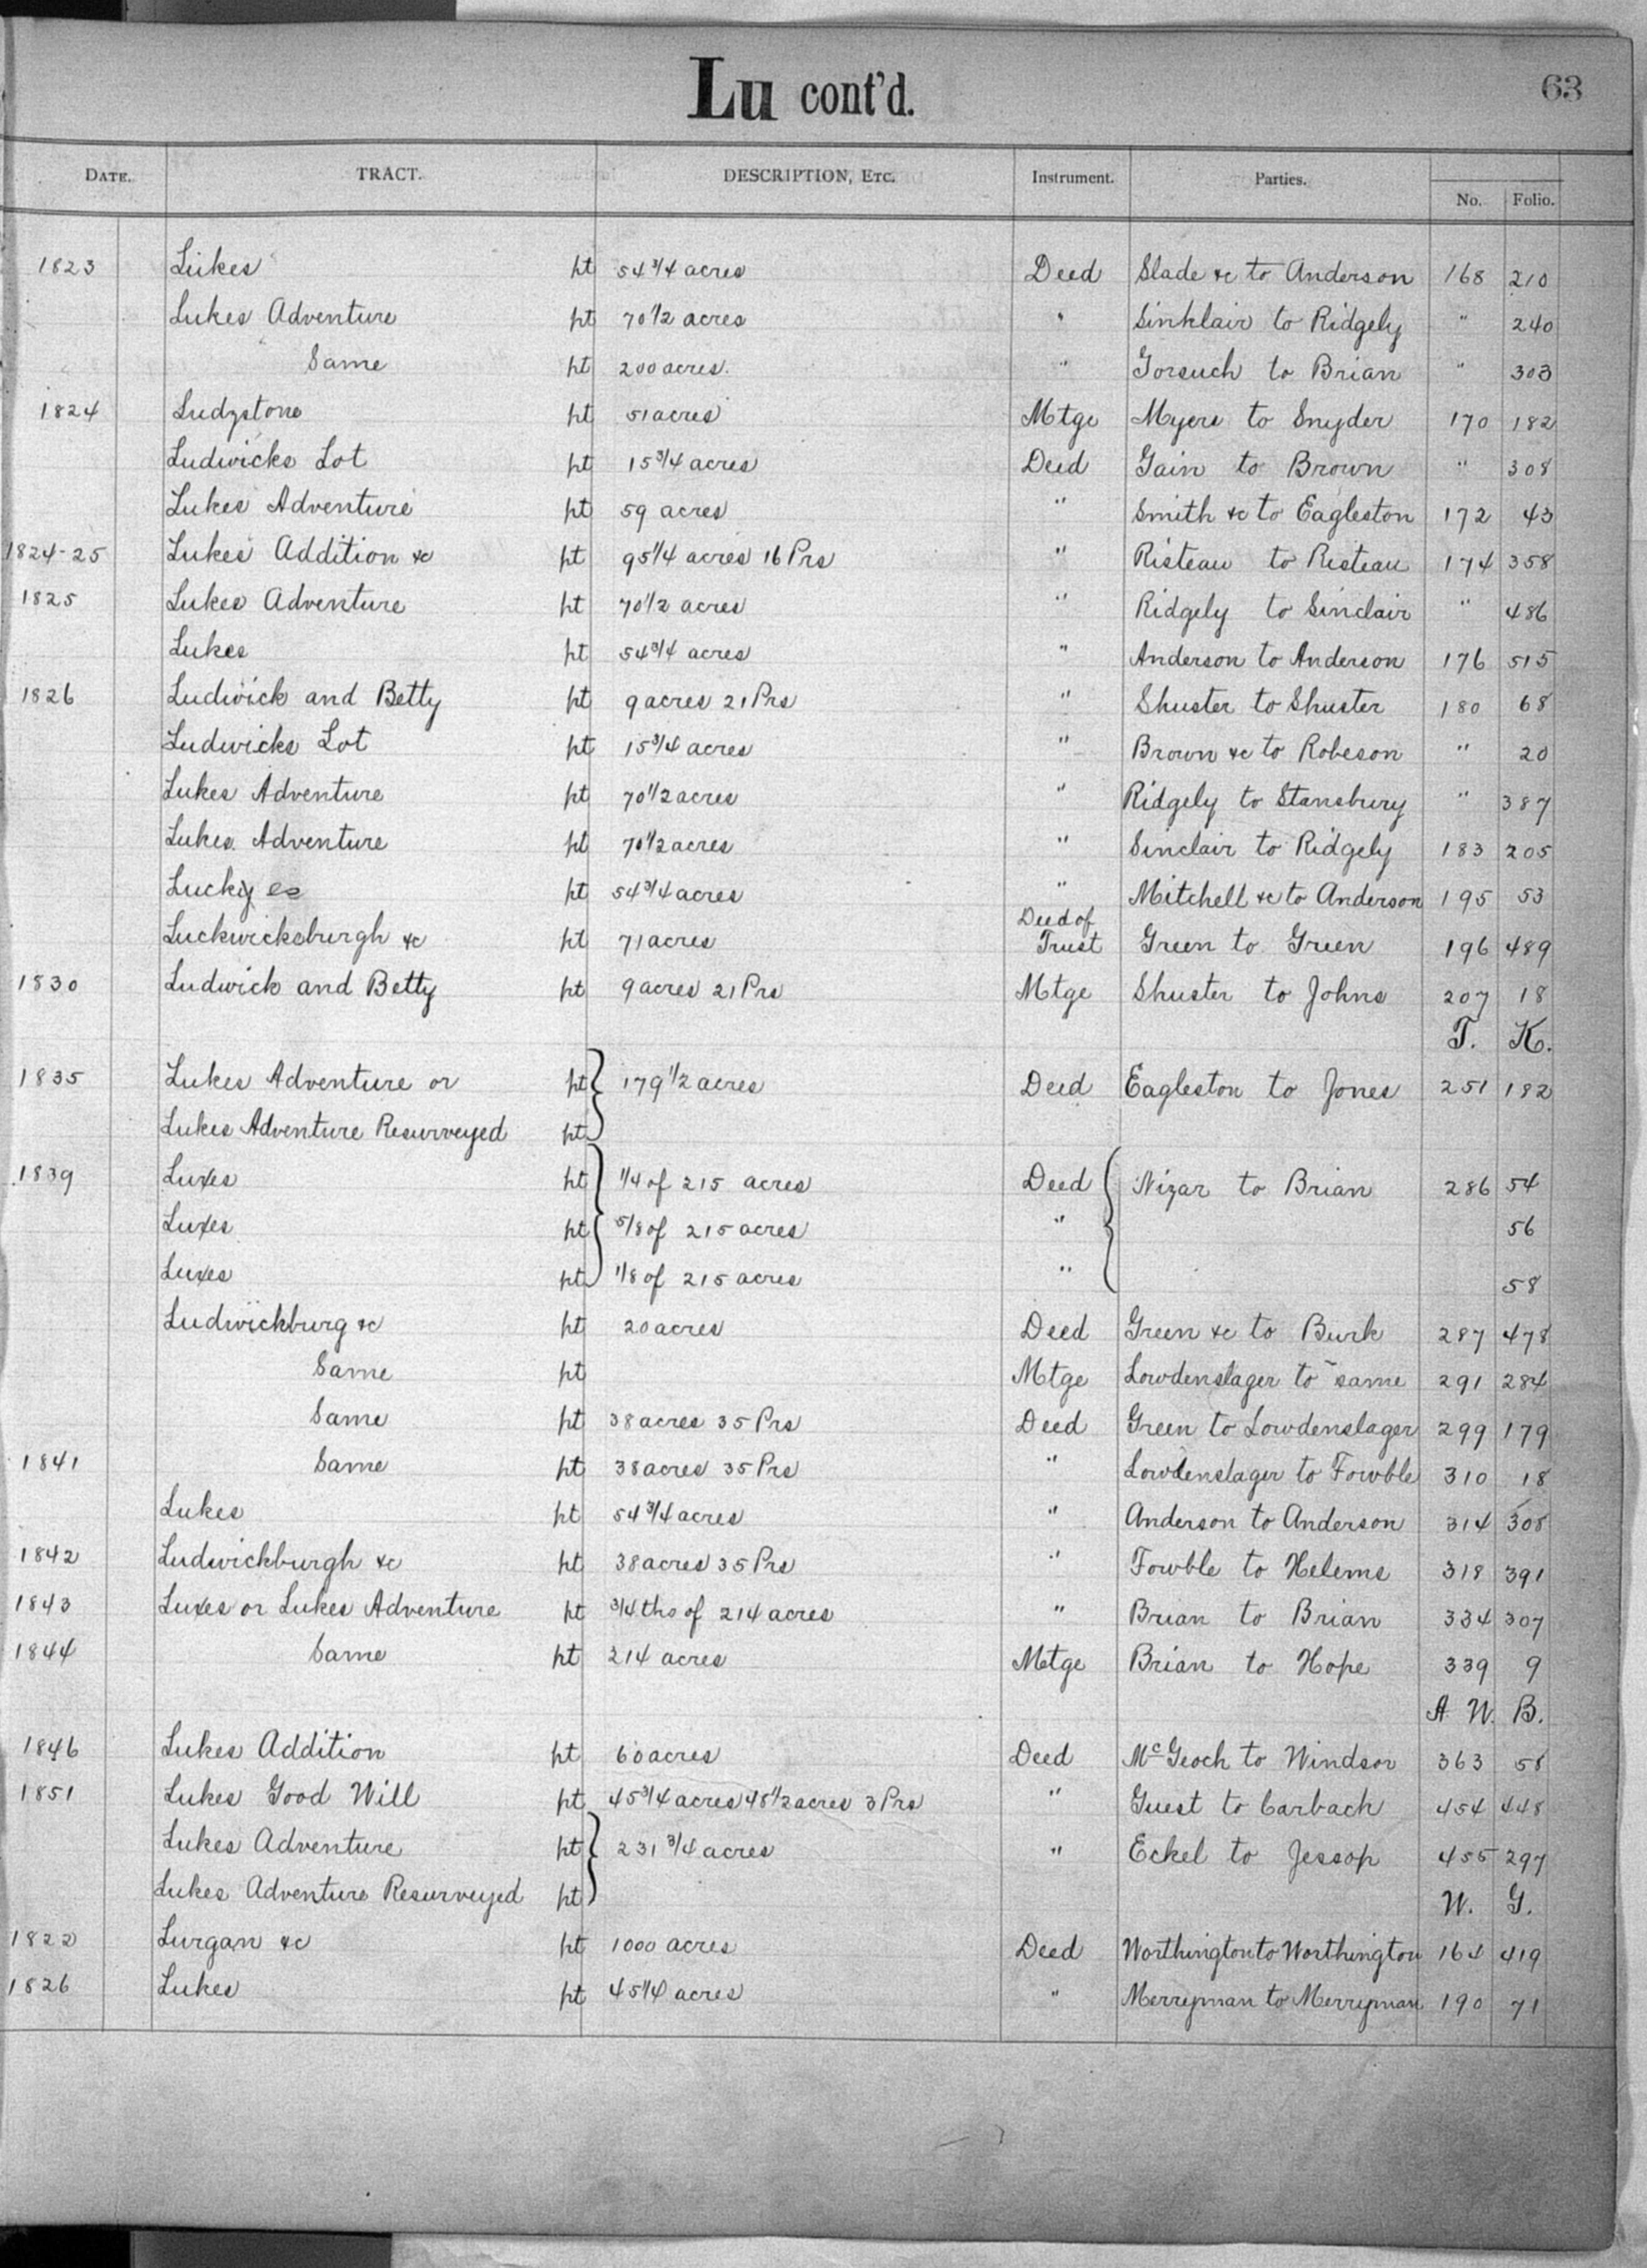 Lu cont'd. 63
DATE. TRACT. DESCRIPTION, ETC. Instrument. Parties. No. Folio.
1823 Lukes pt 54 3/4 acres Deed Slade &c to Anderson 168 210
Lukes Adventure pt 70 1/2 acres " Sinklair to Ridgely " 240
Same pt 200 acres. " Gorsuch to Brian " 303
1824 Ludgstone pt 51 acres Mtge Myers to Snyder 170 182
Ludwicks Lot pt 15 3/4 acres Deed Gain to Brown " 308
Lukes Adventure pt 59 acres " Smith &c to Eagleston 172 43
1824-25 Lukes Addition &c pt 95 1/4 acres 16 Prs " Risteau to Risteau 174 358
1825 Lukes Adventure pt 70 1/2 acres " Ridgely to Sinclair " 486
Lukes pt 54 3/4 acres " Anderson to Anderson 176 515
1826 Ludwick and Betty pt 9 acres 21 Prs " Shuster to Shuster 180 68
Ludwicks Lot pt 15 3/4 acres " Brown &c to Robeson " 20
Lukes Adventure pt 70 1/2 acres " Ridgely to Stansbury " 387
Lukes Adventure pt 70 1/2 acres " Sinclair to Ridgely 183 205
Lucky es pt 54 3/4 acres " Mitchell &c to Anderson 195 53
Deed of
Luckwicksburgh &c pt 71 acres Trust Green to Green 196 489
1830 Ludwick and Betty pt 9 acres 21 Prs Mtge Shuster to Johns 207 18
T. K.
1835 Lukes Adventure or pt 179 1/2 acres Deed Eagleston to Jones 251 182
Lukes Adventure Resurveyed pt
1839 Luxes pt 1/4 of 215 acres Deed Nizar to Brian 286 54
Luxes pt 5/8 of 215 acres " 56
Luxes pt 1/8 of 215 acres " 58
Ludwickburg &c pt 20 acres Deed Green &c to Burk 287 478
Same pt Mtge Lowdenslager to same 291 284
Same pt 38 acres 35 Prs Deed Green to Lowdenslager 299 179
1841 Same pt 38 acres 35 Prs " Lowdenslager to Fowble 310 18
Lukes pt 54 3/4 acres " Anderson to Anderson 314 308
1842 Ludwickburgh &c pt 38 acres 35 Prs " Fowble to Helems 318 391
1843 Luxes or Lukes Adventure pt 3/4ths of 214 acres " Brian to Brian 334 307
1844 Same pt 214 acres Mtge Brian to Hope 339 9
A. W. B.
1846 Lukes Addition pt 60 acres Deed McGeoch to Windsor 363 58
1851 Lukes Good Will pt 45 3/4 acres 48 1/2 acres 3 Prs " Guest to Carback 454 448
Lukes Adventure pt 231 3/4 acres " Eckel to Jessop 455 297
Lukes Adventure Resurveyed pt W. G.
1822 Lurgan &c pt 1000 acres Deed Worthington to Worthington 164 419
1826 Lukes pt 45 1/4 acres " Merryman to Merryman 190 71